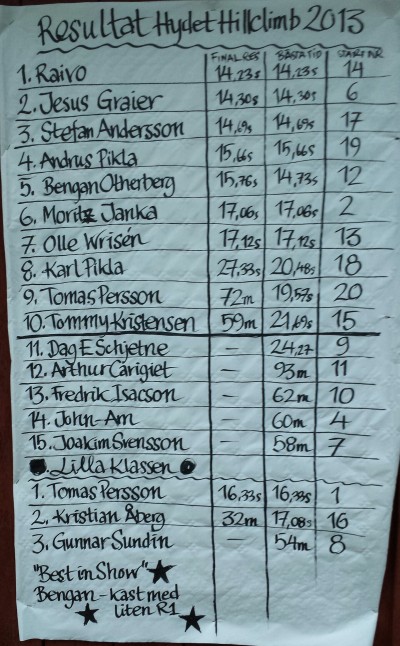 Resultat Hydet Hillclimb 2013
FINAL RES BÄSTA TID START NR
1. Raivo 14,23s 14,23s 14
2. Jesus Graier 14,30s 14,30s 6
3. Stefan Andersson 14,69s 14,69s 17
4. Andrus Pikla 15,66s 15,66s 19
5. Bengan Otherberg 15,76s 14,73s 12
6. Moritz Janka 17,06s 17,06s 2
7. Olle Wrisén 17,12s 17,12s 13
8. Karl Pikla 27,33s 20,48s 18
9. Tomas Persson 72m 19,57s 20
10. Tommy Kristensen 59m 21,69s 15
11. Dag E Schjetne – 24,27 9
12. Arthur Carigiet – 93m 11
13. Fredrik Isacson – 62m 10
14. John-Arn – 60m 4
15. Joakim Svensson – 58m 7
Lilla Klassen
1. Tomas Persson 16,33s 16,33s 1
2. Kristian Åberg 32m 17,08s 16
3. Gunnar Sundin – 54m 8
"Best in Show"
Bengan – kast med
liten R1